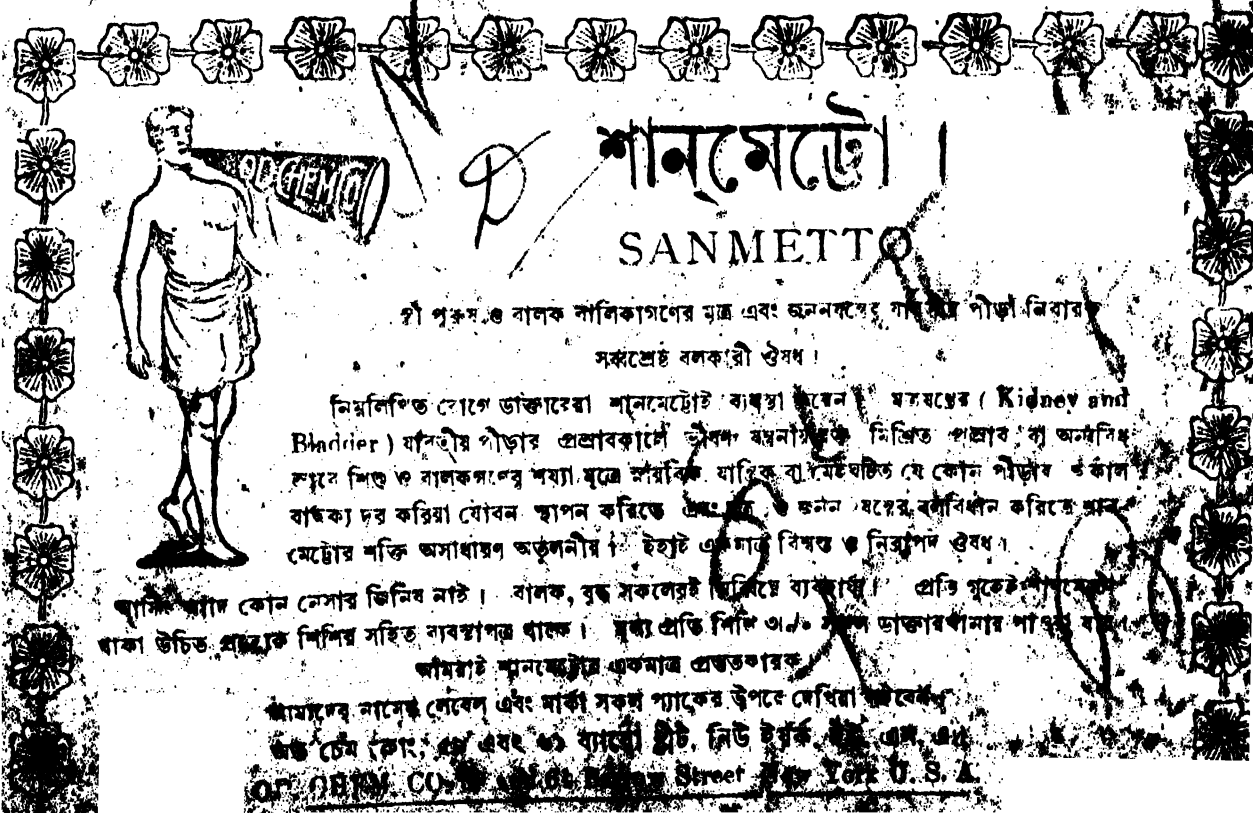 OD CHEM CO
শান্‌মেট্টো ।
SANMETTO
স্ত্রী পুরুষ ও বালক বালিকাগণের মূত্র এবং জননযন্ত্রের যাবতীয় পীড়া নিবারক
সর্ব্বশ্রেষ্ঠ বলকারী ঔষধ ।
নিম্নলিখিত রোগে ডাক্তারেরা শানমেট্টোই ব্যবস্থা করেন । মূত্রযন্ত্রের ( Kidney and
Bladder ) যাবতীয় পীড়ার প্রস্রাবকালে ভীষণ মিশ্রিত প্রস্রাব বা
শিশু ও বালকগণের শয্যা মূত্রে স্নায়বিক যান্ত্রিক বা মেহঘটিত যে কোন পীড়ায় অকাল
বার্দ্ধক্য দূর করিয়া যৌবন স্থাপন করিতে এবং মূত্র ও জনন যন্ত্রের বলবিধান করিতে শান-
মেট্টোর শক্তি অসাধারণ অতুলনীয় । ইহাই একমাত্র বিশ্বস্ত ও নিরাপদ ঔষধ ।
কোন নেসার জিনিষ নাই । বালক, বৃদ্ধ সকলেরই ব্যবহার্য্য । প্রতি গৃহেই শানমেট্টো
থাকা উচিত প্রত্যেক শিশির সহিত ব্যবস্থাপত্র থাকে । মূল্য প্রতি শিশি ৩৷৷০ সকল ডাক্তারখানায় পাওয়া যায় ।
আমরাই শানমেট্টোর একমাত্র প্রস্তুতকারক
আমাদের নামের লেবেল এবং মার্কা সকল প্যাকের উপরে দেখিয়া লইবেন ।
অড চেম কোং, ৫৯ এবং ৬১ ব্যারো ষ্ট্রীট, নিউ ইয়র্ক, ইউ, এস, এ।
OD. CHEM. CO. 61 Barrow Street New York U. S. A.